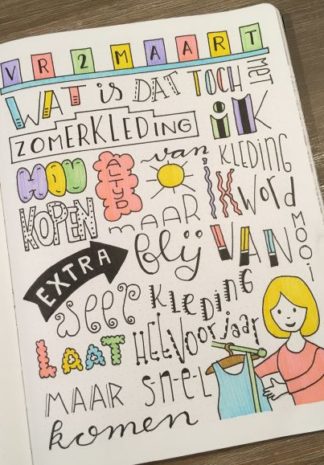 VR 2 MAART
WAT is DAT TOCH MET
ZOMERKLEDING ik
HOU ALTIJD van KLEDING
KOPEN MAAR IK WORD
EXTRA blij VAN MOOI
weer KLEDING
LAAT HEt Voorjaar
MAAR S-N-E-L
komen